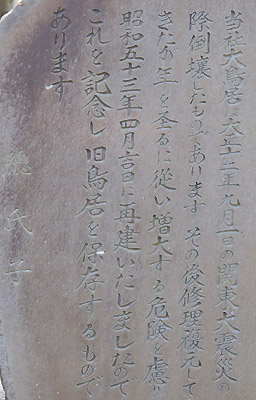 当社大鳥居は大正十二年九月一日の関東大震災の
際倒壊したものであります その後修理復元して
きたが年を圣るに従い増大する危険を慮り
昭和五十三年四月吉日に再建いたしましたので
これを記念し旧鳥居を保存するもので
あります
氏子